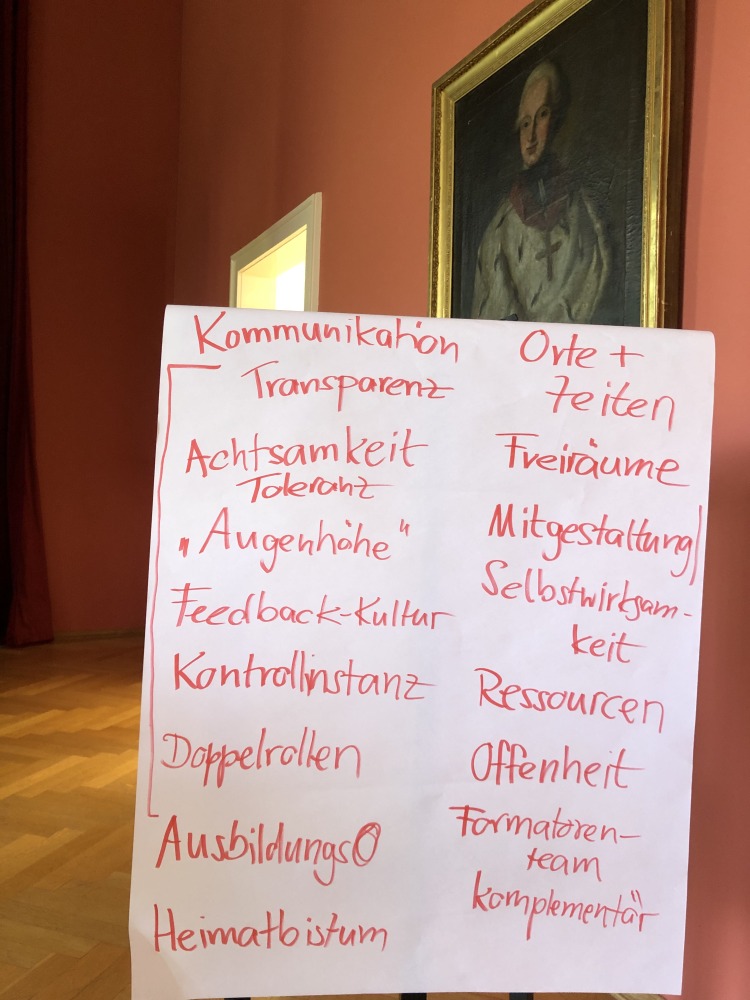 Kommunikation
Transparenz
Achtsamkeit
Toleranz
„Augenhöhe“
Feedback-Kultur
Kontrollinstanz
Doppelrollen
AusbildungsO
Heimatbistum
Orte +
Zeiten
Freiräume
Mitgestaltung/
Selbstwirksam-
keit
Ressourcen
Offenheit
Formatoren-
team
komplementär